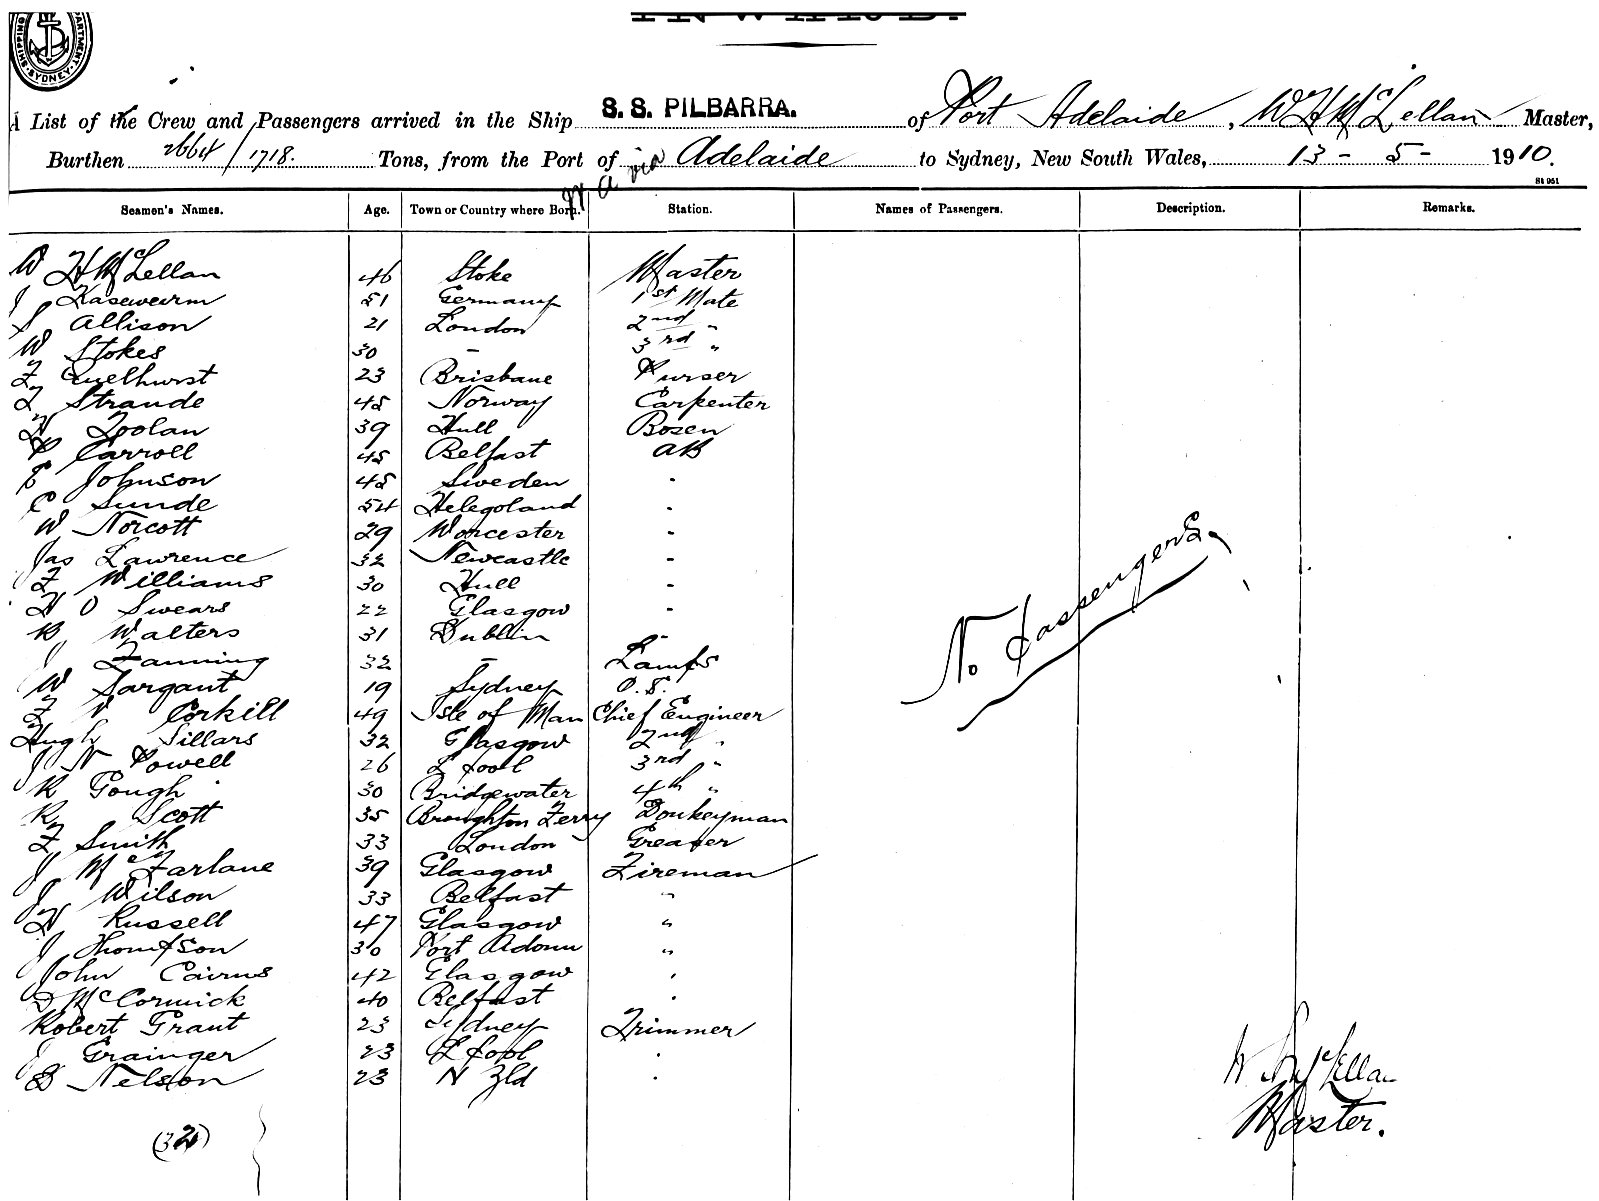 INWARD.
SHIPPING DEPARTMENT SYDNEY
A List of the Crew and Passengers arrived in the Ship S. S. PILBARRA. of Port Adelaide, W H McLellan Master,
Burthen 2664/1718. Tons, from the Port of W A via Adelaide to Sydney, New South Wales, 13 - 5 - 1910.
St 951
Seamen's Names. Age. Town or Country where Born. Station. Names of Passengers. Description. Remarks.
W H McLellan 46 Stoke Master
J Kasewurm 51 Germany 1st Mate
S Allison 21 London 2nd "
W Stokes 30 - 3rd "
F Quelhurst 23 Brisbane Purser
L Strande 45 Norway Carpenter
W Toolan 39 Hull Bosen
P Carroll 45 Belfast AB
E Johnson 45 Sweden "
C Sunde 54 Helegoland "
W Norcott 29 Worcester "
Jas Lawrence 32 Newcastle "
F Williams 30 Hull "
H O Swears 22 Glasgow "
R Walters 31 Dublin "
J Fanning 32 - Lamps
W Sargant 19 Sydney O.S.
F V Corkill 49 Isle of Man Chief Engineer
Hugh Sillars 32 Glasgow 2nd "
J N Powell 26 L pool 3rd "
R Gough 30 Bridgewater 4th "
R Scott 35 Broughton Ferry Donkeyman
F Smith 33 London Greaser
J McFarlane 39 Glasgow Fireman
J Wilson 33 Belfast "
H Russell 47 Glasgow "
J Thompson 30 Port Adonn "
John Cairns 42 Glasgow "
D McCormick 40 Belfast "
Robert Grant 23 Sydney Trimmer
J Grainger 23 L pool "
B Nelson 23 N Zld "
No Passengers.
(32)
W H McLellan
Master.